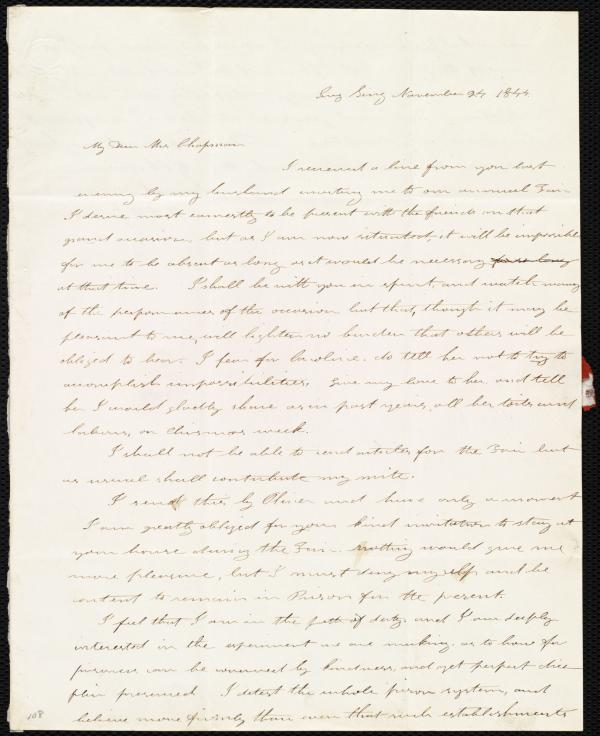 Sing Sing November 24 1844
My Dear Mrs Chapman
I received a line from you last
evening by my husband inviting me to our annual Fair
I desire most earnestly to be present with the friends on that
grand occasion, but as I am now situated, it will be impossible
for me to be absent as long as it would be necessary for so long
at that time. I shall be with you in spirit and watch many
of the performances of the occasion but that, though it may be
pleasant to me, will lighten no burden that others will be
obliged to bear. I fear for Caroline. do tell her not to try to
accomplish impossibilities. Give my love to her, and tell
her I would gladly share as in past years, all her toils and
labors, on Chismas week.
I shall not be able to send articles for the Fair but
as usual shall contribute my mite.
I send this by Oliver and have only a moment
I am greatly obliged for your kind invitation to stay at
your house during the Fair. nothing would give me
more pleasure, but I must deny myself and be
content to remain in Prison for the present.
I feel that I am in the path of duty, and I am deeply
interested in the experiment we are making, as to how far
prisoners can be governed by kindness, and yet perfect disci
plin preserved I detest the whole prison system, and
believe more firmly than ever that such establishments
108